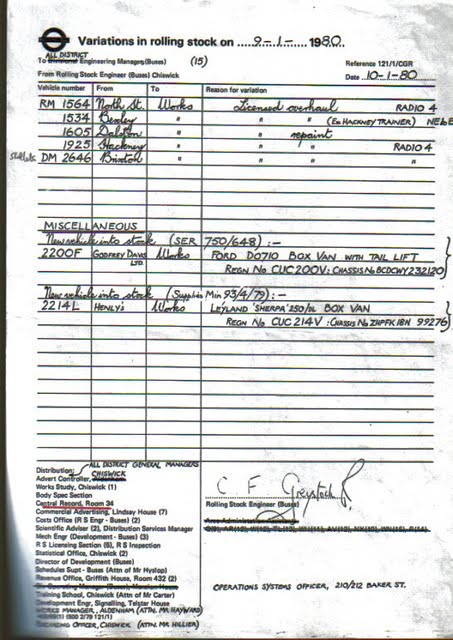 Variations in rolling stock on 9-1- 1980.
ALL DISTRICT
To Divisional Engineering Managers(Buses) (15)
Reference 121/1/CGR
From Rolling Stock Engineer (Buses) Chiswick
Date 10-1-80
Vehicle number From To Reason for variation
RM 1564 North St. Works Licensed overhaul RADIO 4
1534 Bexley " " " (Ex HACKNEY TRAINER)
1605 Dalston " " repaint
1925 Hackney " " " RADIO 4
DM 2646 Brixton " " " "
MISCELLANEOUS
New vehicle into stock (SER 750/648) :-
2200F GODFREY DAVIS LTD. Works FORD DO710 BOX VAN WITH TAIL LIFT
REGN No CUC 200V: CHASSIS No BCDCWY 232120
New vehicle into stock (Supplies Min 93/4/79) :-
2214L HENLY'S Works LEYLAND 'SHERPA' 250/HL BOX VAN
REGN No CUC 214V : CHASSIS No 99276
Distribution: ALL DISTRICT GENERAL MANAGERS
CHISWICK
Advert Controller, Aldenham
Works Study, Chiswick (1)
Body Spec Section
Central Record, Room 34
Commercial Advertising, Lindsay House (7)
Costs Office (R S Engr - Buses) (2)
Scientific Adviser (2), Distribution Services Manager
Mech Engr (Development - Buses) (3)
R S Licensing Section (6), R S Inspection
Statistical Office, Chiswick (2)
Director of Development (Buses)
Schedules Supt - Buses (Attn of Mr Hyslop)
Revenue Office, Griffith House, Room 432 (2)
Training School, Chiswick (Attn of Mr Carter)
Development Engr, Signalling, Telstar House
WORKS MANAGER, ALDENHAM (ATTN. MR. HAYWARD)
(1800 2/79 121/1)
OFFICER, CHISWICK (ATTN. MR. HILLIER)
C F Greystock
Rolling Stock Engineer (Buses)
OPERATIONS SYSTEMS OFFICER, 210/212 BAKER ST.